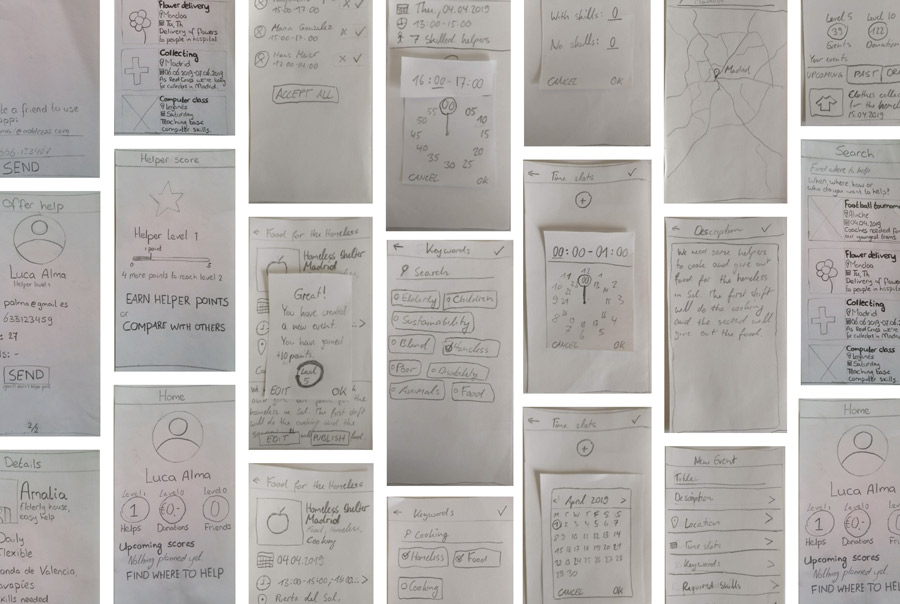 le a friend to use
SEND
Offer help
Luca Alma
Helper level 1
palma@gmail.es
633123459
: 27
s: -
SEND
2/2
Details
Amalia
Elderly house,
easy help
Daily
Flexible
onda de Valencia,
avapiés
kills needed
Flower delivery
Moncloa
Tu, Th
Delivery of flowers
to people in hospital.
Collecting
Madrid
Computer class
Saturday
Teaching base
computer skills.
Helper score
Helper level 1
1 point
5
4 more points to reach level 2
EARN HELPER POINTS
or
COMPARE WITH OTHERS
Home
Luca Alma
Level 1
Level 0
Level 0
1
€0,-
0
Helps
Donations
Friends
Upcoming scores
Nothing planned yet.
FIND WHERE TO HELP
15:00-17:00
Maria Gonzalez
15:00-17:00
Hans Meier
ACCEPT ALL
Food for the Homeless
Homeless Shelter
Madrid
Great!
You have created
a new event.
You have gained
+10 points.
Level
5
EDIT
OK
homeless in Sol. The first shift
will do the cooking and the
EDIT
PUBLISH
Food for the Homeless
Homeless Shelter
Madrid
Food, Homeless,
Cooking
04.04.2019
13:00-15:00, 14:00... >
Puerta del Sol.
Thu, 04.04.2019
13:00-15:00
7 Skilled helpers
16:00-17:00
00
55
05
50
10
45
15
40
20
35
30
25
CANCEL
OK
Keywords
Search
Elderly
Children
Sustainability
Blind
Homeless
Poor
Disability
Animals
Food
Keywords
Cooking
Homeless
Food
Cooking
With skills: 0
No skills: 0
CANCEL
OK
Time slots
00:00-01:00
CANCEL
OK
Time slots
< April 2019 >
M T W T F S S
1 2 3 4 5 6 7
CANCEL
OK
Madrid
Description
We need some helpers
to cook and give out
food for the homeless
in Sol. The first shift
will do the cooking
and the second will
give out the food.
New Event
Title:
Description >
Location >
Time slots >
Keywords >
Required Skills >
Level 5
Level 10
39
122
Events
Donations
Your events
UPCOMING
PAST
Clothes
for the
15.04.2019
Search
Find where to help
When, where, how or
who do you want to help?
Football tournam
Aluche
04.04.2019
Coaches needed for
our youngest teams.
Flower delivery
Moncloa
Tu, Th
Delivery of flowers
to people in hospital.
Collecting
Madrid
Computer class
Saturday
Teaching base
computer skills.
Home
Luca Alma
Level 1
Level 0
Level 0
1
€0,-
0
Helps
Donations
Friends
Upcoming scores
Nothing planned yet.
FIND WHERE TO HELP